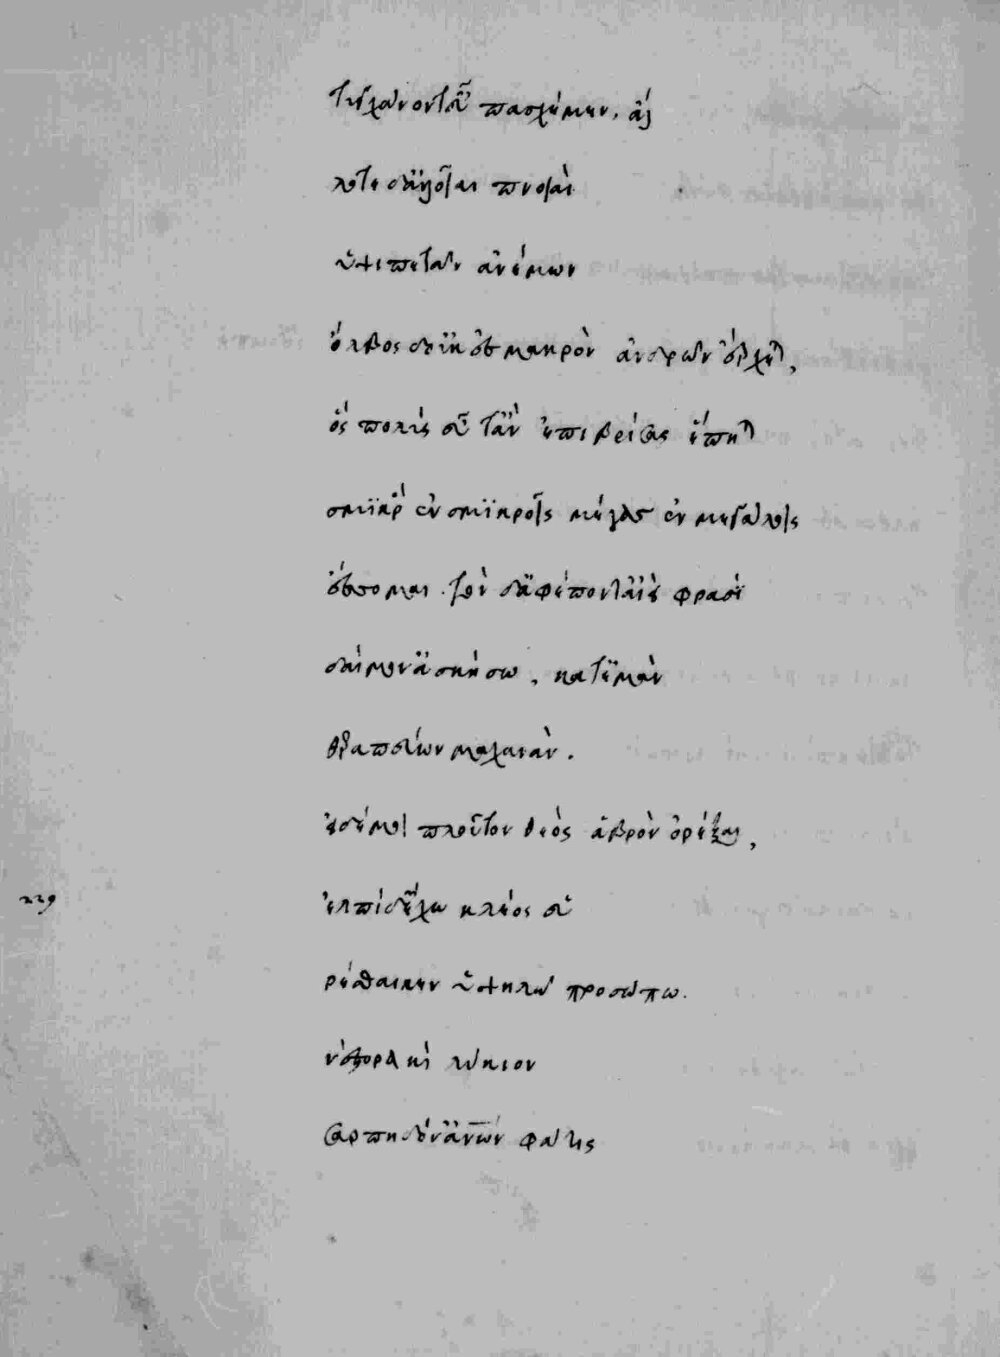 τυγχάνοντ' εὖ πασχέμεν. ἄλ
λοτε δ' ἀλλοῖαι πνοιαὶ
ὑψιπετᾶν ἀνέμων
ὄλβος δ' οὐκ ἐς μακρὸν ἀνδρῶν ἔρχεται,
ὃς πολὺς εὖτ' ἂν ἐπιβρίσας ἕπηται
σμικρὸς ἐν σμικροῖς μέγας ἐν μεγάλοις
ἔσσομαι. τὸν δ' ἀμφέποντ' αἰεὶ φρασὶ
δαίμον' ἀσκήσω, κατ' ἐμὰν
θεραπεύων μαχανάν.
εἰ δέ μοι πλοῦτον θεὸς ἁβρὸν ὀρέξαι,
229
ἐλπίδ' ἔχω κλέος εὑ
ρέσθαι κεν ὑψηλὸν προσώπω.
νέστορα καὶ λύκιον
σαρπηδόν' ἀνθρώπων φάτις